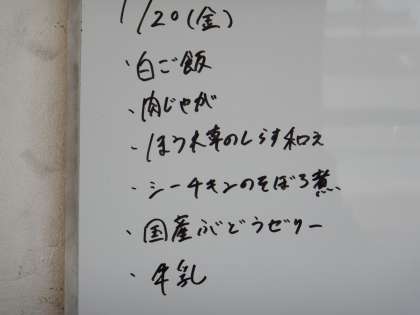 1/20(金)
・白ご飯
・肉じゃが
・ほうれん草のしらす和え
・シーチキンのそぼろ煮
・国産ぶどうゼリー
・牛乳